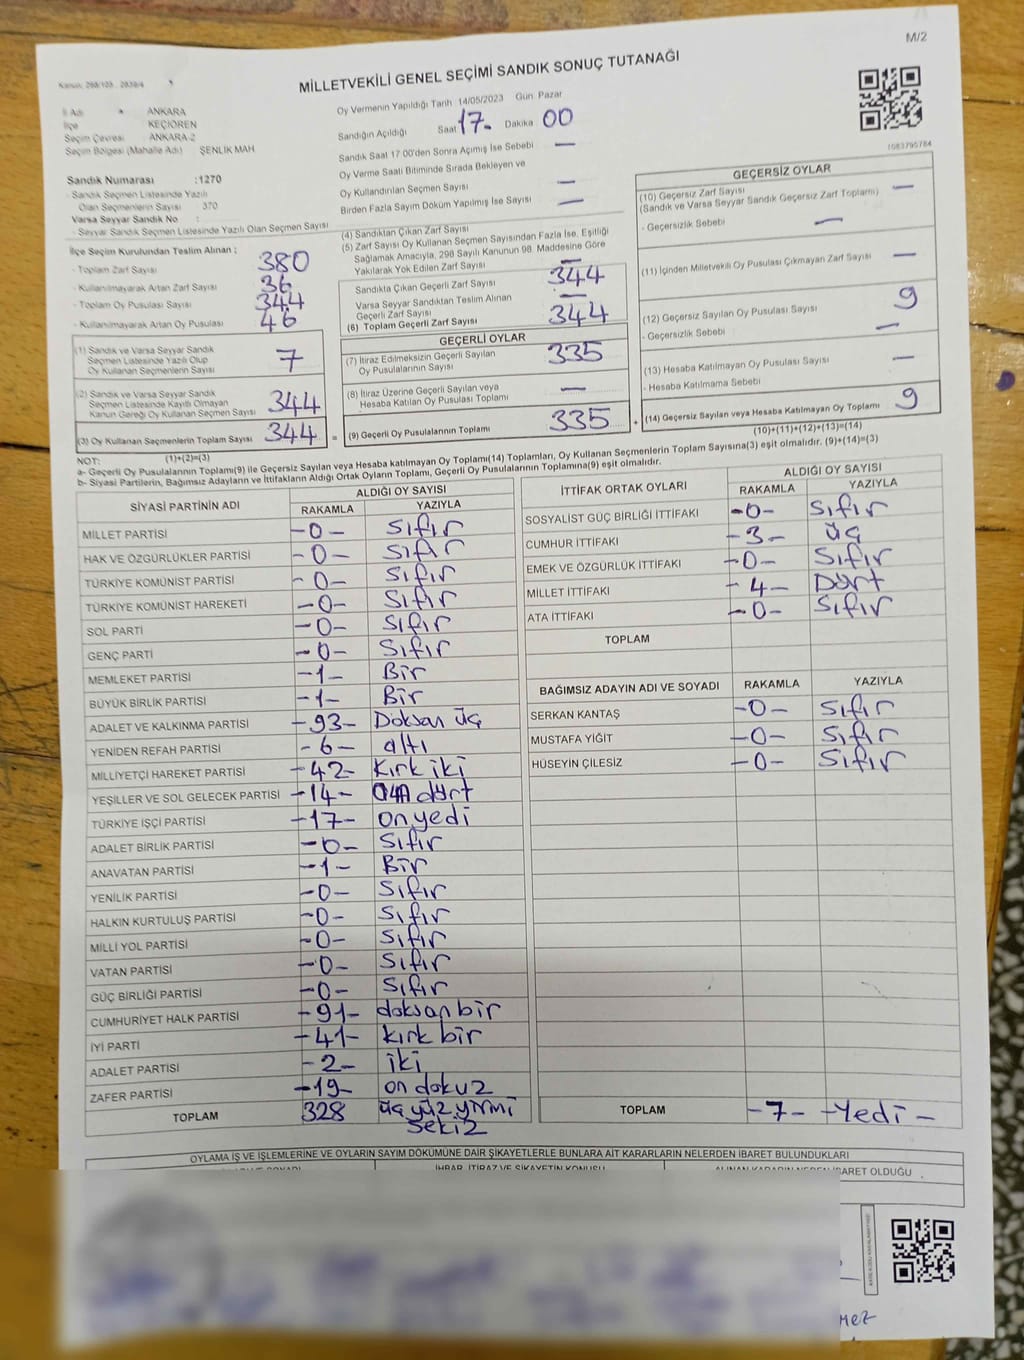 M/2
MİLLETVEKİLİ GENEL SEÇİMİ SANDIK SONUÇ TUTANAĞI
İl Adı ANKARA
İlçe KEÇİÖREN
Seçim Çevresi : ANKARA-2
Seçim Bölgesi (Mahalle Adı) ŞENLİK MAH.
Oy Vermenin Yapıldığı Tarih 14/05/2023 Gün Pazar
Sandığın Açıldığı Saat 17- Dakika 00
Sandık Saat 17:00'den Sonra Açılmış İse Sebebi —
Oy Verme Saati Bitiminde Sırada Bekleyen ve
Oy Kullandırılan Seçmen Sayısı —
Birden Fazla Sayım Döküm Yapılmış İse Sayısı —
1083795784
Sandık Numarası :1270
- Sandık Seçmen Listesinde Yazılı
Olan Seçmenlerin Sayısı 370
Varsa Seyyar Sandık No :
- Seyyar Sandık Seçmen Listesinde Yazılı Olan Seçmen Sayısı
İlçe Seçim Kurulundan Teslim Alınan ;
- Toplam Zarf Sayısı 380
- Kullanılmayarak Artan Zarf Sayısı 36
- Toplam Oy Pusulası Sayısı 344
- Kullanılmayarak Artan Oy Pusulası 46
(1) Sandık ve Varsa Seyyar Sandık
Seçmen Listesinde Yazılı Olup
Oy Kullanan Seçmenlerin Sayısı 7
(2) Sandık ve Varsa Seyyar Sandık
Seçmen Listesinde Kayıtlı Olmayan
Kanun Gereği Oy Kullanan Seçmen Sayısı 344
(3) Oy Kullanan Seçmenlerin Toplam Sayısı 344 =
(1)+(2)=(3)
(4) Sandıktan Çıkan Zarf Sayısı
(5) Zarf Sayısı Oy Kullanan Seçmen Sayısından Fazla İse, Eşitliği
Sağlamak Amacıyla, 298 Sayılı Kanunun 98. Maddesine Göre
Yakılarak Yok Edilen Zarf Sayısı —
Sandıkta Çıkan Geçerli Zarf Sayısı 344
Varsa Seyyar Sandıktan Teslim Alınan
Geçerli Zarf Sayısı —
(6) Toplam Geçerli Zarf Sayısı 344
GEÇERLİ OYLAR
(7) İtiraz Edilmeksizin Geçerli Sayılan
Oy Pusulalarının Sayısı 335
(8) İtiraz Üzerine Geçerli Sayılan veya
Hesaba Katılan Oy Pusulası Toplamı —
(9) Geçerli Oy Pusulalarının Toplamı 335 +
GEÇERSİZ OYLAR
(10) Geçersiz Zarf Sayısı
(Sandık ve Varsa Seyyar Sandık Geçersiz Zarf Toplamı) —
- Geçersizlik Sebebi —
(11) İçinden Milletvekili Oy Pusulası Çıkmayan Zarf Sayısı —
(12) Geçersiz Sayılan Oy Pusulası Sayısı 9
- Geçersizlik Sebebi —
(13) Hesaba Katılmayan Oy Pusulası Sayısı —
- Hesaba Katılmama Sebebi
(14) Geçersiz Sayılan veya Hesaba Katılmayan Oy Toplamı 9
(10)+(11)+(12)+(13)=(14)
NOT:
a- Geçerli Oy Pusulalarının Toplamı(9) ile Geçersiz Sayılan veya Hesaba katılmayan Oy Toplamı(14) Toplamları, Oy Kullanan Seçmenlerin Toplam Sayısına(3) eşit olmalıdır. (9)+(14)=(3)
b- Siyasi Partilerin, Bağımsız Adayların ve İttifakların Aldığı Ortak Oyların Toplamı, Geçerli Oy Pusulalarının Toplamına(9) eşit olmalıdır.
SİYASİ PARTİNİN ADI ALDIĞI OY SAYISI
RAKAMLA YAZIYLA
MİLLET PARTİSİ -0- Sıfır
HAK VE ÖZGÜRLÜKLER PARTİSİ -0- Sıfır
TÜRKİYE KOMÜNİST PARTİSİ -0- Sıfır
TÜRKİYE KOMÜNİST HAREKETİ -0- Sıfır
SOL PARTİ -0- Sıfır
GENÇ PARTİ -0- Sıfır
MEMLEKET PARTİSİ -1- Bir
BÜYÜK BİRLİK PARTİSİ -1- Bir
ADALET VE KALKINMA PARTİSİ -93- Doksan üç
YENİDEN REFAH PARTİSİ -6- altı
MİLLİYETÇİ HAREKET PARTİSİ -42- Kırk iki
YEŞİLLER VE SOL GELECEK PARTİSİ -14- on dört
TÜRKİYE İŞÇİ PARTİSİ -17- on yedi
ADALET BİRLİK PARTİSİ -0- Sıfır
ANAVATAN PARTİSİ -1- Bir
YENİLİK PARTİSİ -0- Sıfır
HALKIN KURTULUŞ PARTİSİ -0- Sıfır
MİLLİ YOL PARTİSİ -0- Sıfır
VATAN PARTİSİ -0- Sıfır
GÜÇ BİRLİĞİ PARTİSİ -0- Sıfır
CUMHURİYET HALK PARTİSİ -91- doksan bir
İYİ PARTİ -41- kırk bir
ADALET PARTİSİ -2- iki
ZAFER PARTİSİ -19- on dokuz
TOPLAM 328 üç yüz yirmi
sekiz
İTTİFAK ORTAK OYLARI ALDIĞI OY SAYISI
RAKAMLA YAZIYLA
SOSYALİST GÜÇ BİRLİĞİ İTTİFAKI -0- Sıfır
CUMHUR İTTİFAKI -3- üç
EMEK VE ÖZGÜRLÜK İTTİFAKI -0- Sıfır
MİLLET İTTİFAKI -4- Dört
ATA İTTİFAKI -0- Sıfır
TOPLAM
BAĞIMSIZ ADAYIN ADI VE SOYADI RAKAMLA YAZIYLA
SERKAN KANTAŞ -0- Sıfır
MUSTAFA YİĞİT -0- Sıfır
HÜSEYİN ÇİLESİZ -0- Sıfır
TOPLAM -7- -Yedi-
OYLAMA İŞ VE İŞLEMLERİNE VE OYLARIN SAYIM DÖKÜMÜNE DAİR ŞİKAYETLERLE BUNLARA AİT KARARLARIN NELERDEN İBARET BULUNDUKLARI
İHBAR, İTİRAZ VE ŞİKAYETİN KONUSU
ALINAN KARARIN NEDEN İBARET OLDUĞU